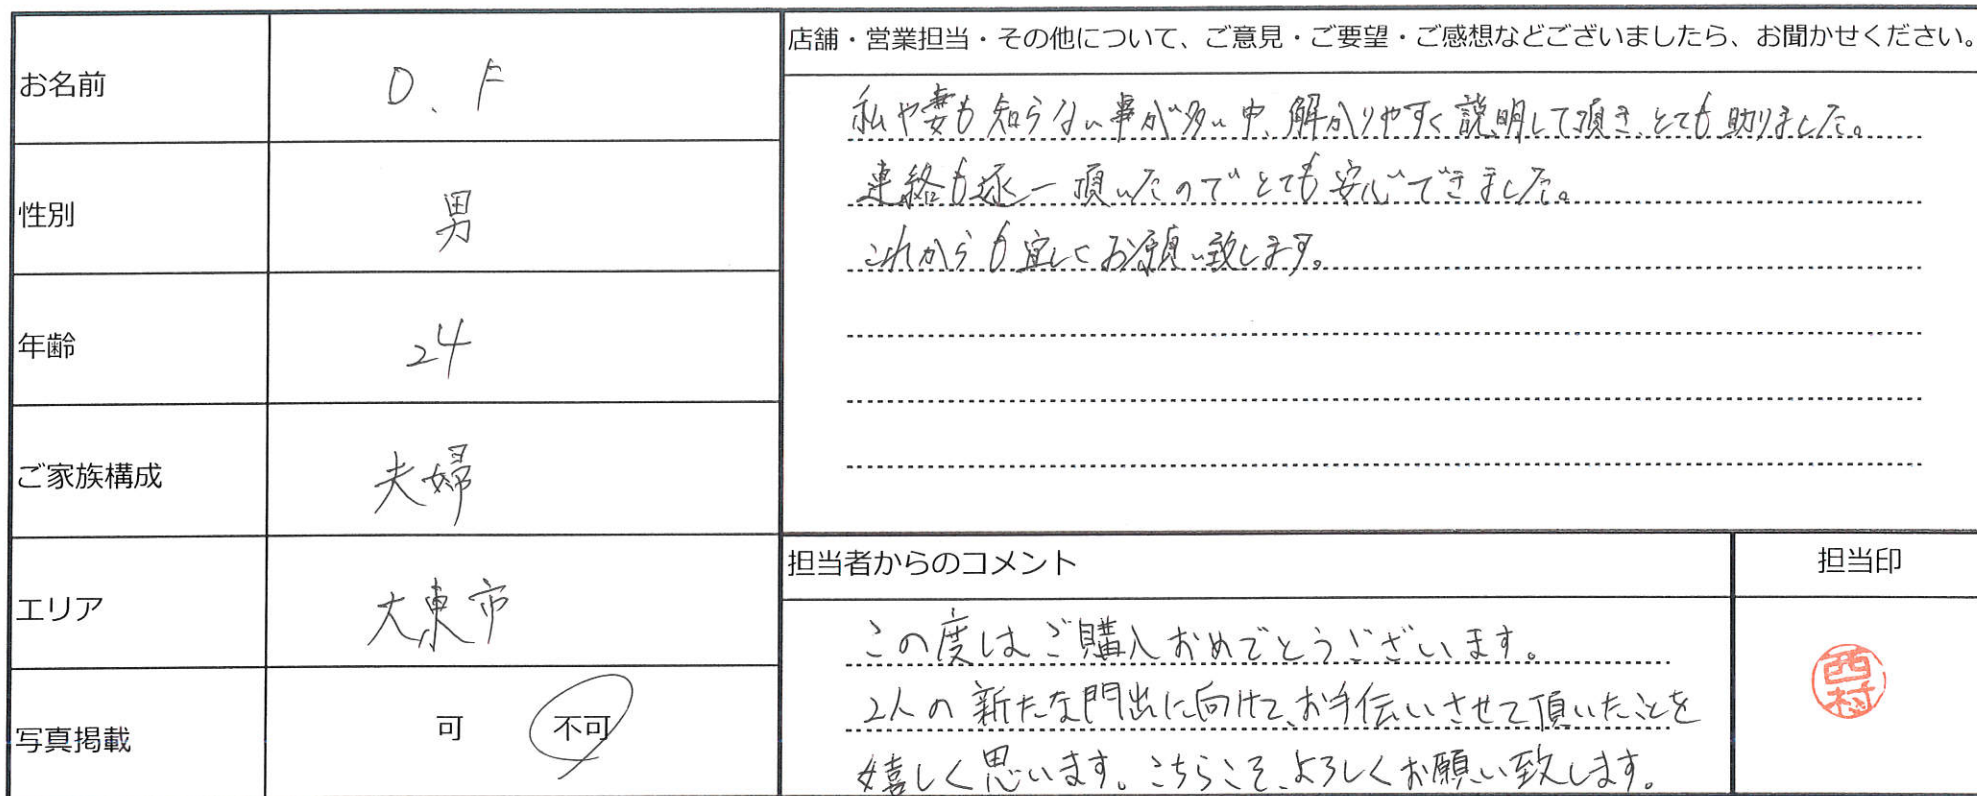 お名前 D.F
性別 男
年齢 24
ご家族構成 夫婦
エリア 大東市
写真掲載 可 不可
店舗・営業担当・その他について、ご意見・ご要望・ご感想などございましたら、お聞かせください。
私や妻も知らない事が多い中、解かりやすく説明して頂き、とても助りました。
連絡も逐一頂いたのでとても安心できました。
これからも宜しくお願い致します。
担当者からのコメント
この度はご購入おめでとうございます。
2人の新たな門出に向けて、お手伝いさせて頂いたことを
嬉しく思います。こちらこそ、よろしくお願い致します。
担当印
西村